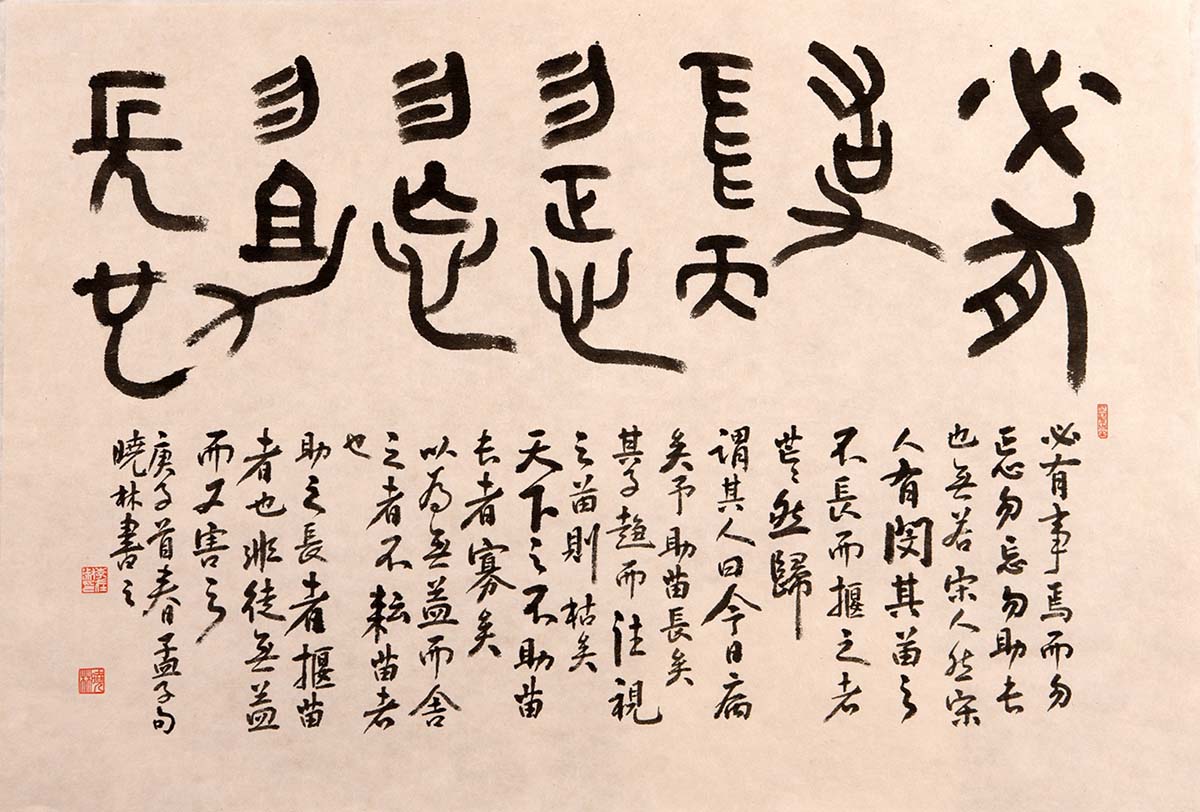 必有
事
焉而
勿正心
勿忘
勿助
長也
必有事焉而勿
正心勿忘勿助長
也無若宋人然宋
人有閔其苗之
不長而揠之者
芒〻然歸
謂其人曰今日病
矣予助苗長矣
其子趨而往視
之苗則枯矣
天下之不助苗
長者寡矣
以為無益而舍
之者不耘苗者
也
助之長者揠苗
者也非徒無益
而又害之
庚子首春孟子句
曉林書之